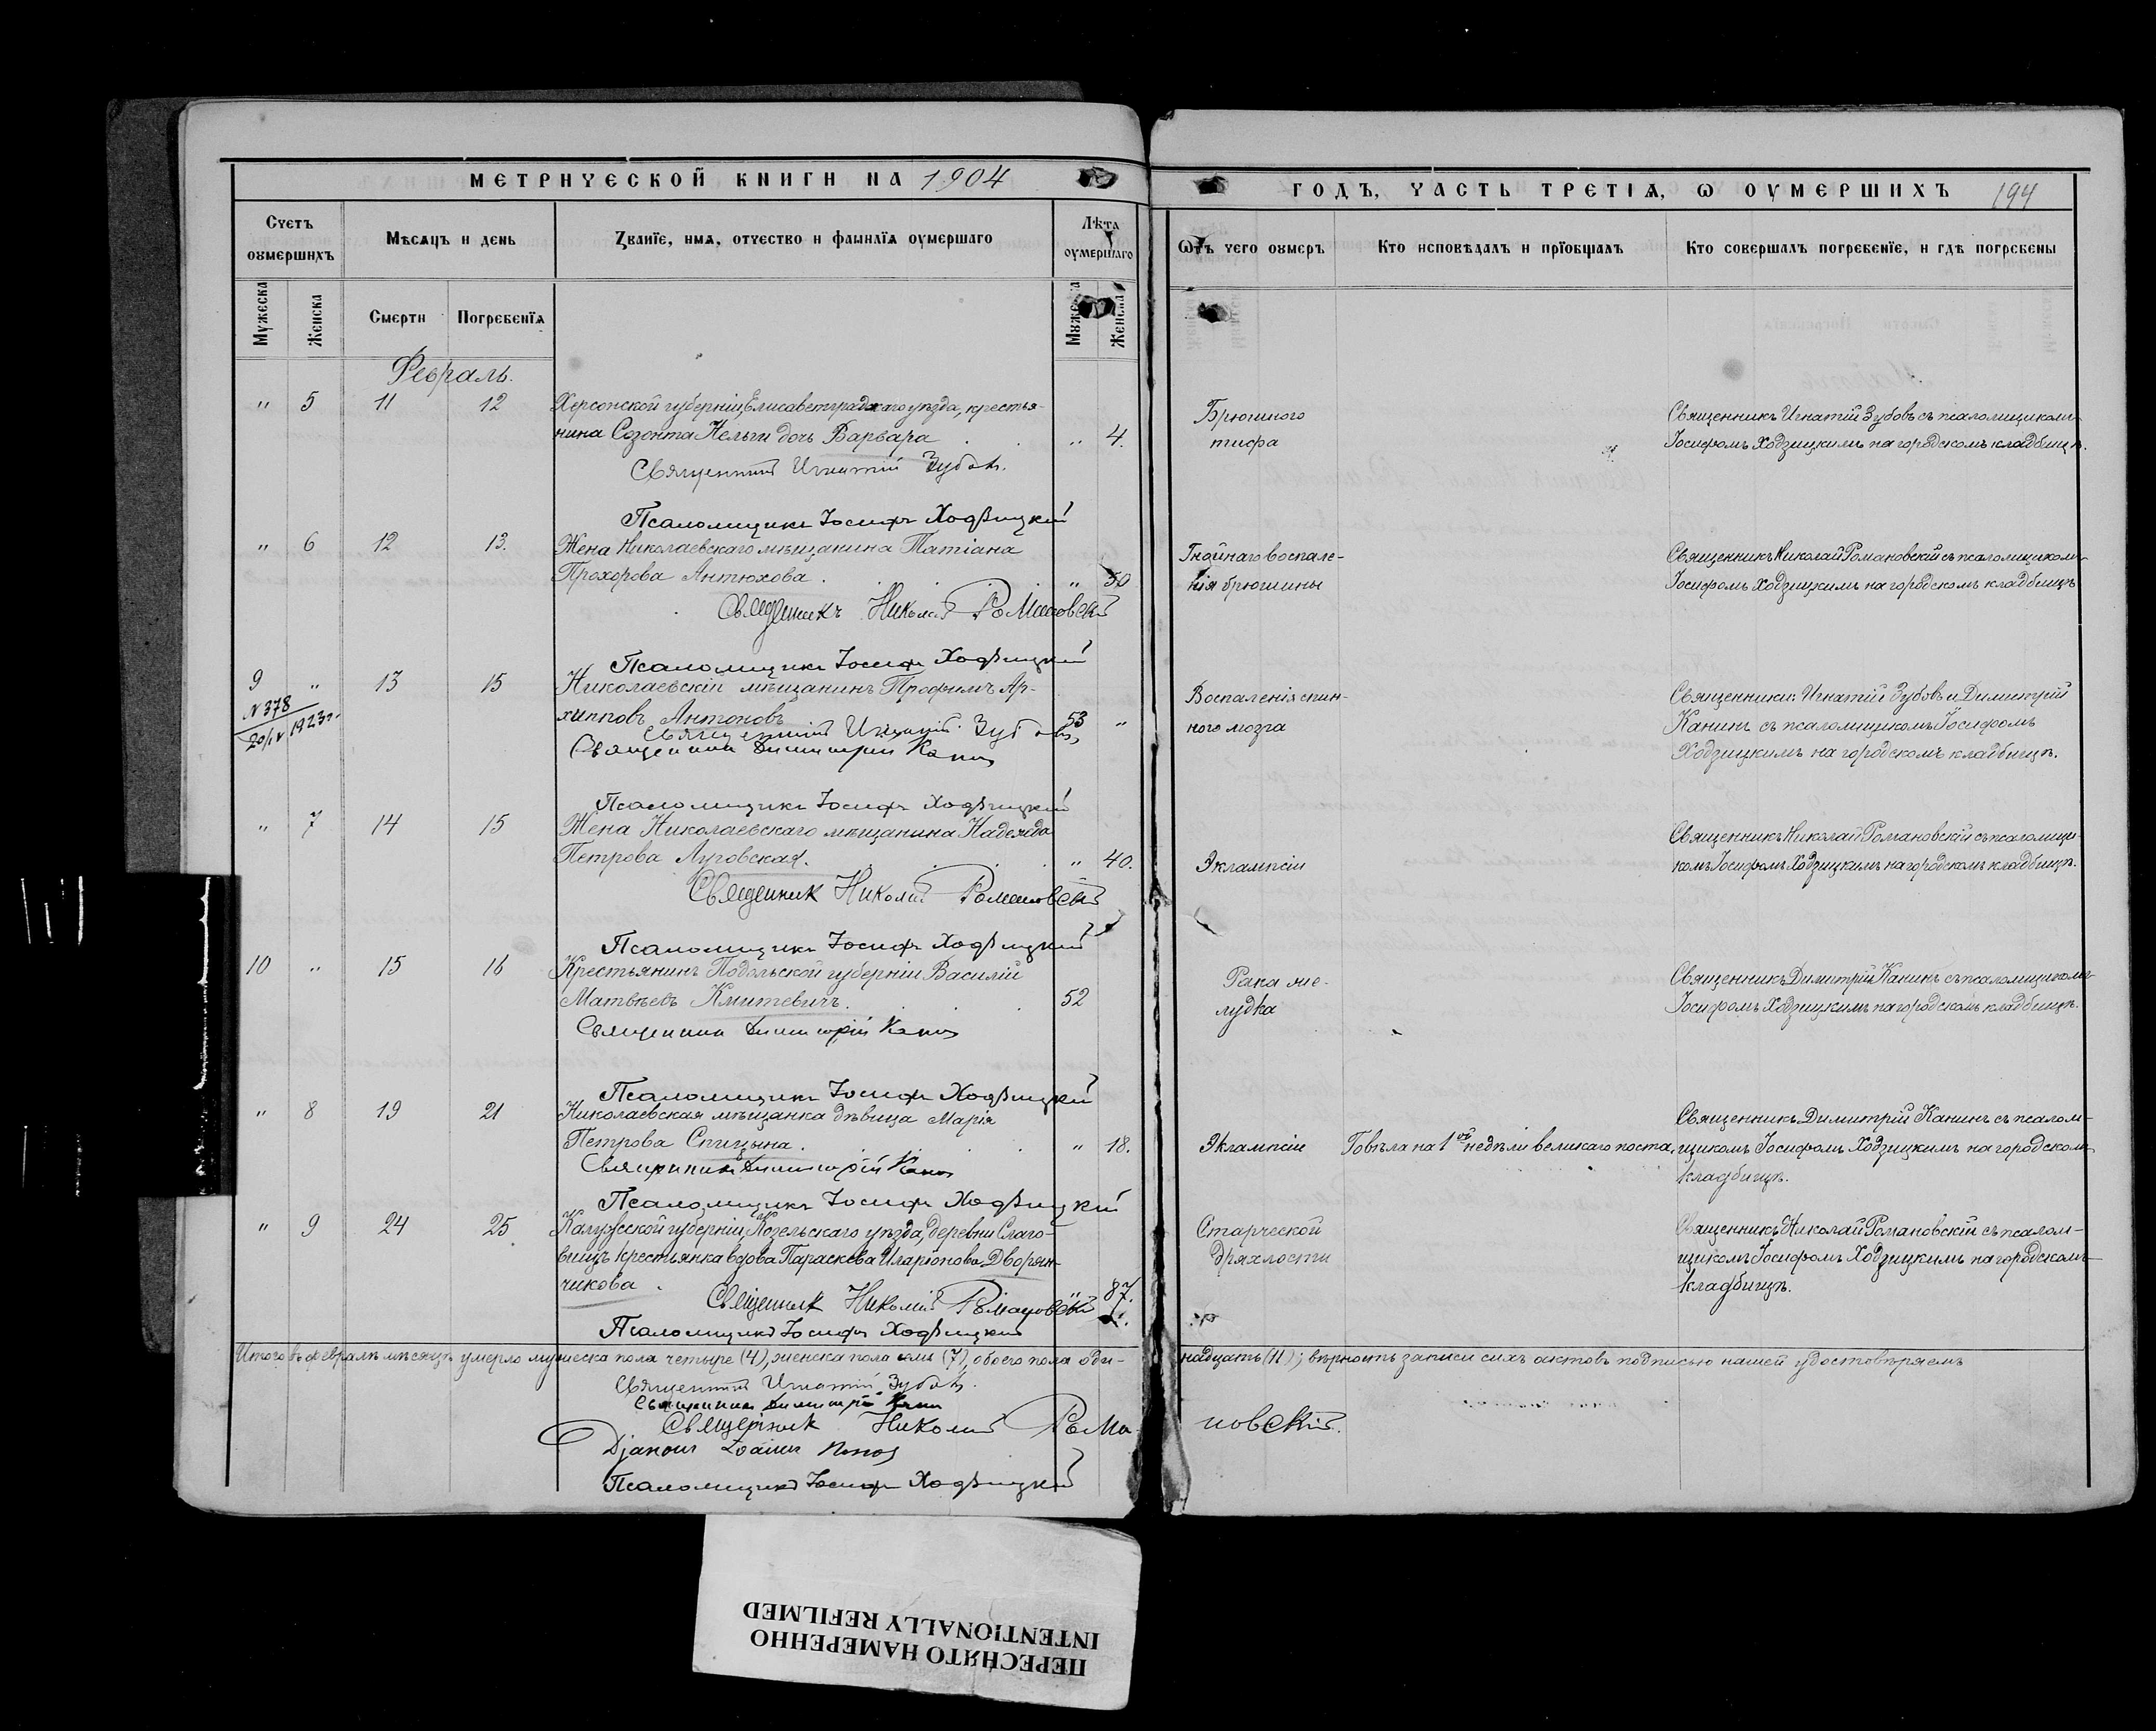 МЕТРИЧЕСКОЙ КНИГИ НА 1904
ГОДЪ, ЧАСТЬ ТРЕТІѦ, Ѡ ОУМЕРШИХЪ 194
Счетъ оумершихъ
Мѣсяцъ и день
Званїе, имѧ, отчество и фамилїѧ оумершаго
Лѣта оумершаго
Ѿтъ чего оумеръ
Кто исповѣдалъ и прїобщалъ
Кто совершалъ погребенїе, и гдѣ погребены
Мужеска
Женска
Смерти
Погребенїѧ
Мужеска
Женска
Февраль.
" 5 11 12 Херсонской губерніи, Елисаветградскаго уѣзда, крестья-
нина Созонта дочь Варвара " 4.
Брюшного
тифа
Священникъ Игнатій Зубовъ съ псаломщикомъ
Іосифомъ Ходзицкимъ на городскомъ кладбищѣ.
Священникъ Игнатій Зубовъ.
Псаломщикъ Іосифъ Ходзицкій
" 6 12 13. Жена Николаевскаго мѣщанина Татіана
Прохорова Антюхова. " 50
Гнойнаго воспале-
нія брюшины
Священникъ Николай Романовскій съ псаломщикомъ
Іосифомъ Ходзицкимъ на городскомъ кладбищѣ
Священникъ Николай Романовскій
Псаломщикъ Іосифъ Ходзицкій
9 " 13 15 Николаевскій мѣщанинъ Трофимъ Ар-
хипповъ Антоновъ 53 "
N 378
20/IV 1923 г.
Воспаленія спин-
ного мозга
Священники: Игнатій Зубовъ и Димитрій
Канинъ съ псаломщикомъ Іосифомъ
Ходзицкимъ на городскомъ кладбищѣ.
Священникъ Игнатій Зубовъ,
Священникъ Димитрій Канинъ
Псаломщикъ Іосифъ Ходзицкій
" 7 14 15 Жена Николаевскаго мѣщанина Надежда
Петрова Луговская. " 40.
Эклампсіи
Священникъ Николай Романовскій съ псаломщи-
комъ Іосифомъ Ходзицкимъ на городскомъ кладбищѣ.
Священник Николай Романовскій
Псаломщикъ Іосифъ Ходзицкій
10 " 15 16 Крестьянинъ Подольской губерніи Василій
Матвѣевъ Кмитевичъ. 52
Рака же-
лудка
Священникъ Димитрій Канинъ съ псаломщикомъ
Іосифомъ Ходзицкимъ на городскомъ кладбищѣ.
Священникъ Димитрій Канинъ
Псаломщикъ Іосифъ Ходзицкій
" 8 19 21 Николаевская мѣщанка дѣвица Марія
Петрова Спицына. " 18.
Эклампсіи
Говѣла на 1ой недѣли великаго поста.
Священникъ Димитрій Канинъ съ псалом-
щикомъ Іосифомъ Ходзицкимъ на городскомъ
кладбищѣ.
Священникъ Димитрій Канинъ
Псаломщикъ Іосифъ Ходзицкій
" 9 24 25 Калужской губерніи, Козельскаго уѣзда, деревни Слаго-
вищъ крестьянка вдова Параскева Иларіонова Дворян-
чикова. " 87.
Старческой
дряхлости
Священникъ Николай Романовскій съ псалом-
щикомъ Іосифомъ Ходзицкимъ на городскомъ
кладбищѣ.
Священник Николай Романовскій
Псаломщикъ Іосифъ Ходзицкій
Итого въ февралѣ мѣсяцѣ умерло мужеска пола четыре (4), женска пола семь (7), обоего пола оди-
надцать (11); вѣрность записи сихъ актовъ подписью нашей удостовѣряемъ
Священникъ Игнатій Зубовъ.
Священникъ Димитрій Канинъ
Священник Николай Романовскій.
Псаломщикъ Іосифъ Ходзицкій
ПЕРЕСНЯТО НАМЕРЕННО
INTENTIONALLY REFILMED